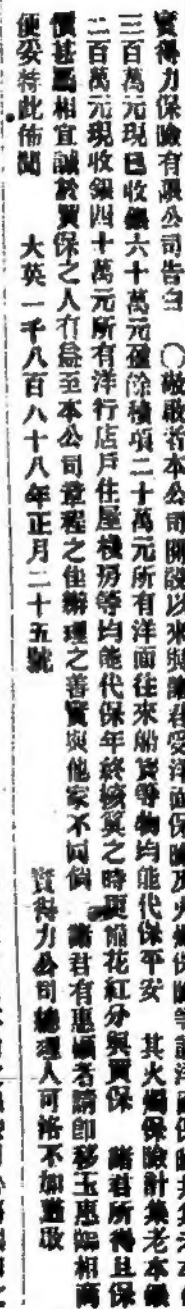 實得力保險有限公司告白　○敬啟者本公司開設以來與諸君受洋面保險及火燭保險等諸洋面保險共集老本
三百萬元現已收銀六十萬元僅除積項二十萬元所有洋面往來船貨等物均能代保平安　其火燭保險計集老本銀
二百萬元現收銀四十萬元所有洋行店戶住屋棧房等均能代保年終核算之時更簡花紅分與買保　諸君所得且保
價甚為相宜誠於買保之人有益至本公司章程之佳辦理之善實與他家不同倘　諸君有惠顧者請即移玉惠臨相商
便妥特此佈聞　大英一千八百八十八年正月二十五號　實得力公司總理人可洛不加謹啟